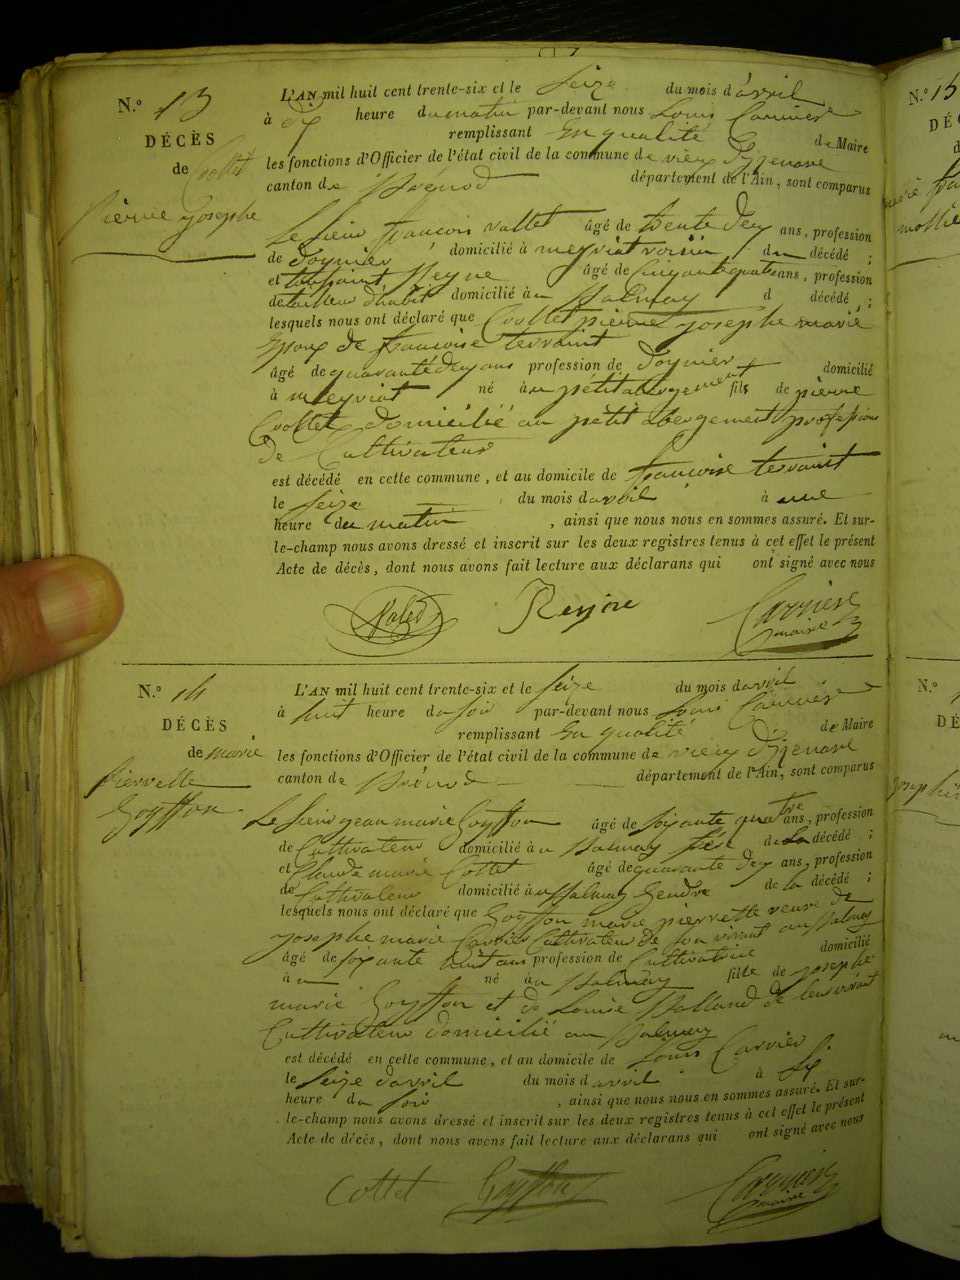 N.º 13
DÉCÈS
de Collet
pierre Josephe
L'AN mil huit cent trente-six et le Seize du mois d'avril
à dix heure du matin par-devant nous Louis Carrier
remplissant En qualité de Maire
les fonctions d'Officier de l'état civil de la commune de vieux D'izenave
canton de Brénod département de l'Ain, sont comparus
Le Sieur francois vallet âgé de trente deux ans, profession
de domicilié à meyriat voisin du décédé ;
et toussaint âgé de Cinquante quatre ans, profession
de tailleur d'habit domicilié à d décédé ;
lesquels nous ont déclaré que Collet pierre josephe marie
Epoux de francoise terraint
âgé de quarante deux ans profession de domicilié
à meyriat né au petit abergement fils de pierre
Collet domicilié au petit abergement profession
de Cultivateur
est décédé en cette commune, et au domicile de francoise terraint
le seize du mois d avril à une
heure du matin , ainsi que nous nous en sommes assuré. Et sur-
le-champ nous avons dressé et inscrit sur les deux registres tenus à cet effet le présent
Acte de décès, dont nous avons fait lecture aux déclarans qui ont signé avec nous
Carrier
maire
N.º 14
DÉCÈS
de marie
Pierrette
Goyffon
L'AN mil huit cent trente-six et le seize du mois d avril
à huit heure du soir par-devant nous Louis Carrier
remplissant En qualité de Maire
les fonctions d'Officier de l'état civil de la commune de vieux D'izenave
canton de Brénod département de l'Ain, sont comparus
Le Sieur jean marie Goyffon âgé de soixante quatre ans, profession
de Cultivateur domicilié à au Balmay frère de La décédé ;
et Claude marie Cottet âgé de quarante deux ans, profession
de Cultivateur domicilié à au Balmay Gendre de la décédé ;
lesquels nous ont déclaré que Goyffon marie pierrette veuve de
josephe marie Carrier Cultivateur de son vivant au Balmay
âgé de soixante huit ans profession de Cultivatrice domicilié
à né au Balmay fille de josephe
marie Goyffon et de Louise Balland de leur vivant
Cultivateur domicilié au Balmay
est décédé en cette commune, et au domicile de Louis Carrier
le seize d'avril du mois d avril à six
heure du soir , ainsi que nous nous en sommes assuré. Et sur-
le-champ nous avons dressé et inscrit sur les deux registres tenus à cet effet le présent
Acte de décès, dont nous avons fait lecture aux déclarans qui ont signé avec nous
Cottet Goyffon Carrier
maire
N.º 15